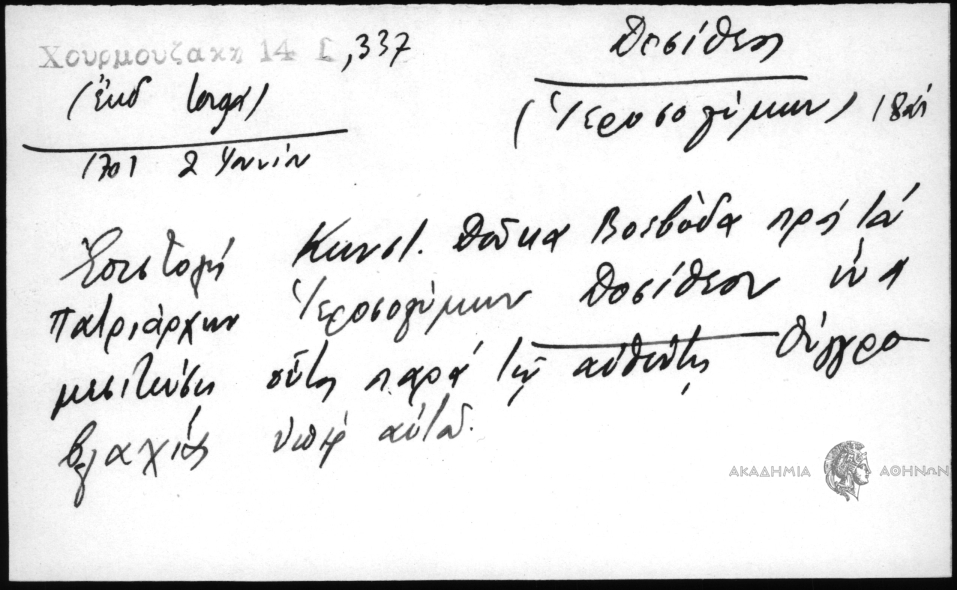 Χουρμουζάκη 14 I, 337
(ἔκδ Iorga)
1701 2 Ἰουνίου
Δοσίθεος
(Ἱεροσολύμων)
Ἐπιστολή Κωνστ. Δούκα Βοεβόδα πρός τόν
Πατριάρχην Ἱεροσολύμων Δοσίθεον ἵνα
μεσιτεύση οὗτος παρά τῷ αὐθέντῃ Οὑγγρο
βλαχίας ὑπέρ αὐτοῦ.
ΑΚΑΔΗΜΙΑ ΑΘΗΝΩΝ